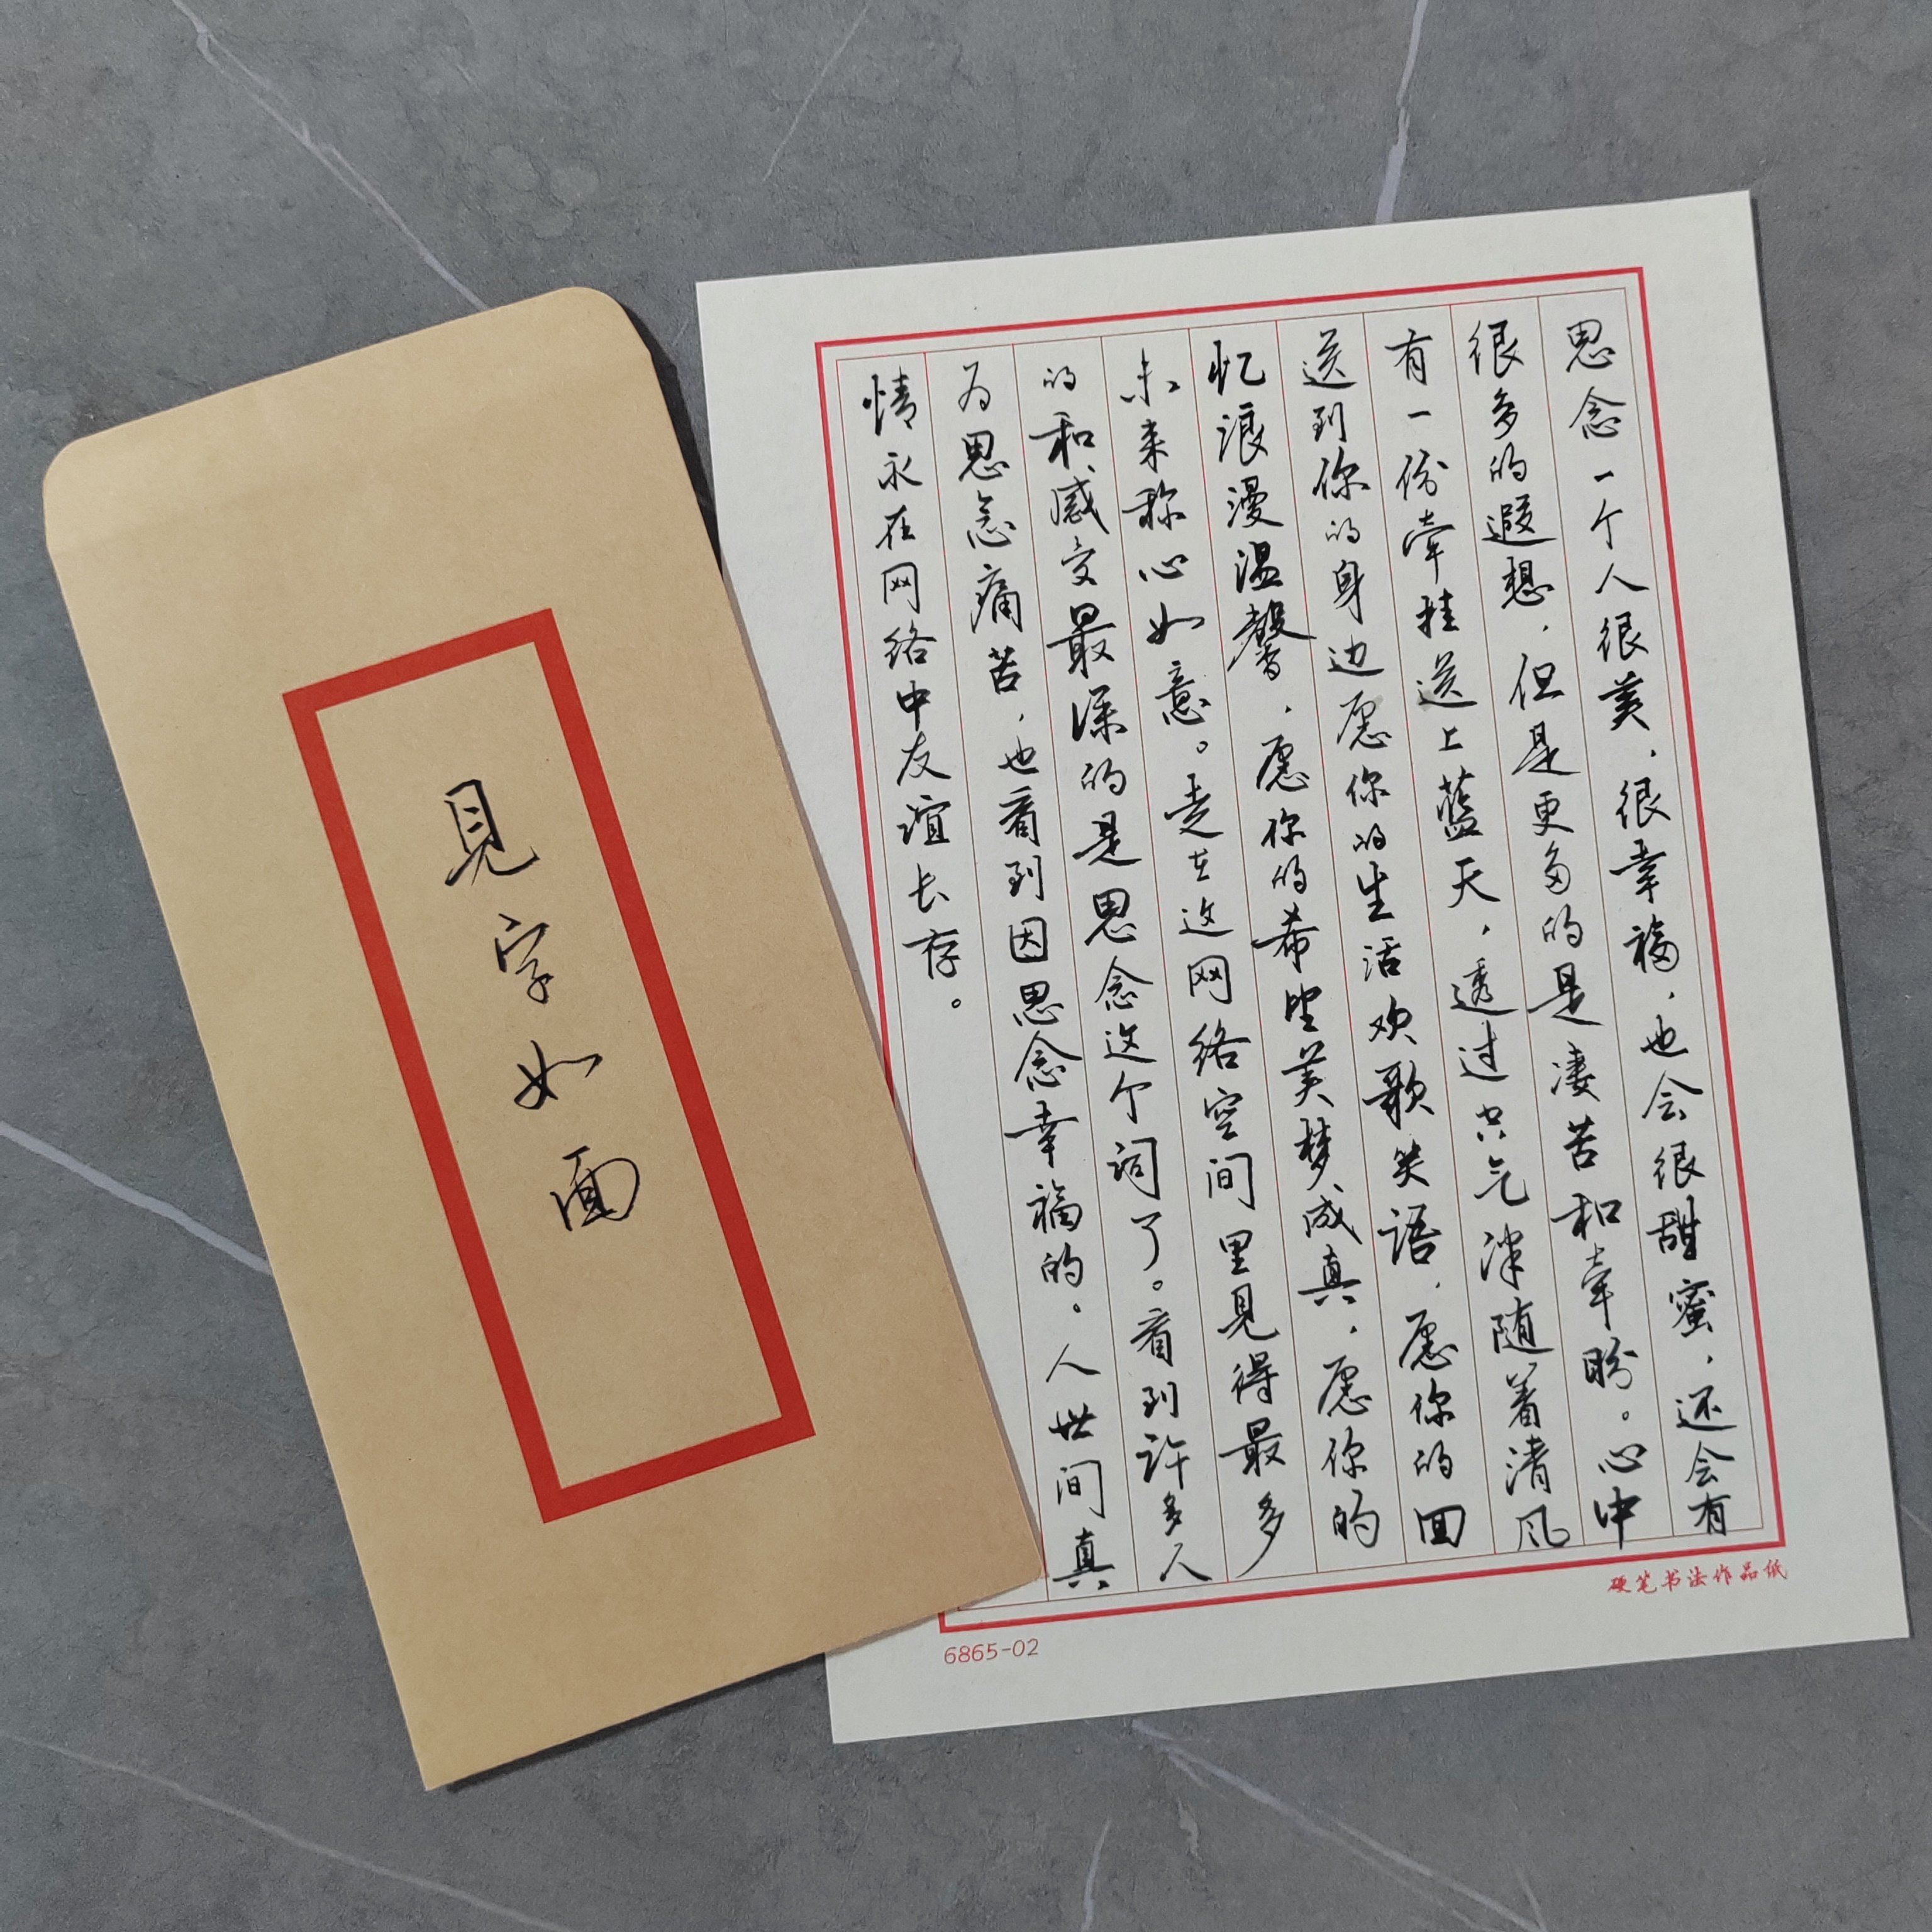 見字如面
思念一个人很美,很幸福,也会很甜蜜,还会有
很多的遐想,但是更多的是凄苦和牵盼。心中
有一份牵挂送上蓝天,透过空气泮随着清风
送到你的身边愿你的生活欢歌笑语,愿你的回
忆浪漫温馨,愿你的希望美梦成真,愿你的
未来称心如意。走在这网络空间里见得最多
的和感受最深的是思念这个词了。看到许多人
为思念痛苦,也看到因思念幸福的。人世间真
情永在网络中友谊长存。
硬笔书法作品纸
6865-02